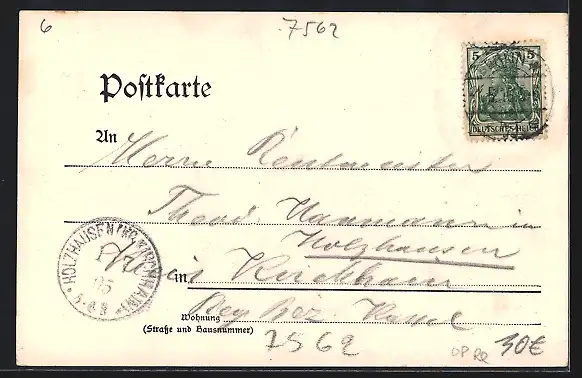 6
7562
5 5
DEUTSCHES REICH
Postkarte
An Herrn Rentmeister
Theod. Naumann in
Holzhausen
HOLZHAUSEN (KR. KIRCHHAIN)
05
Kreis Kirchhain
in
Reg Bez. Kassel
Wohnung
(Straße und Hausnummer)
7562
10€